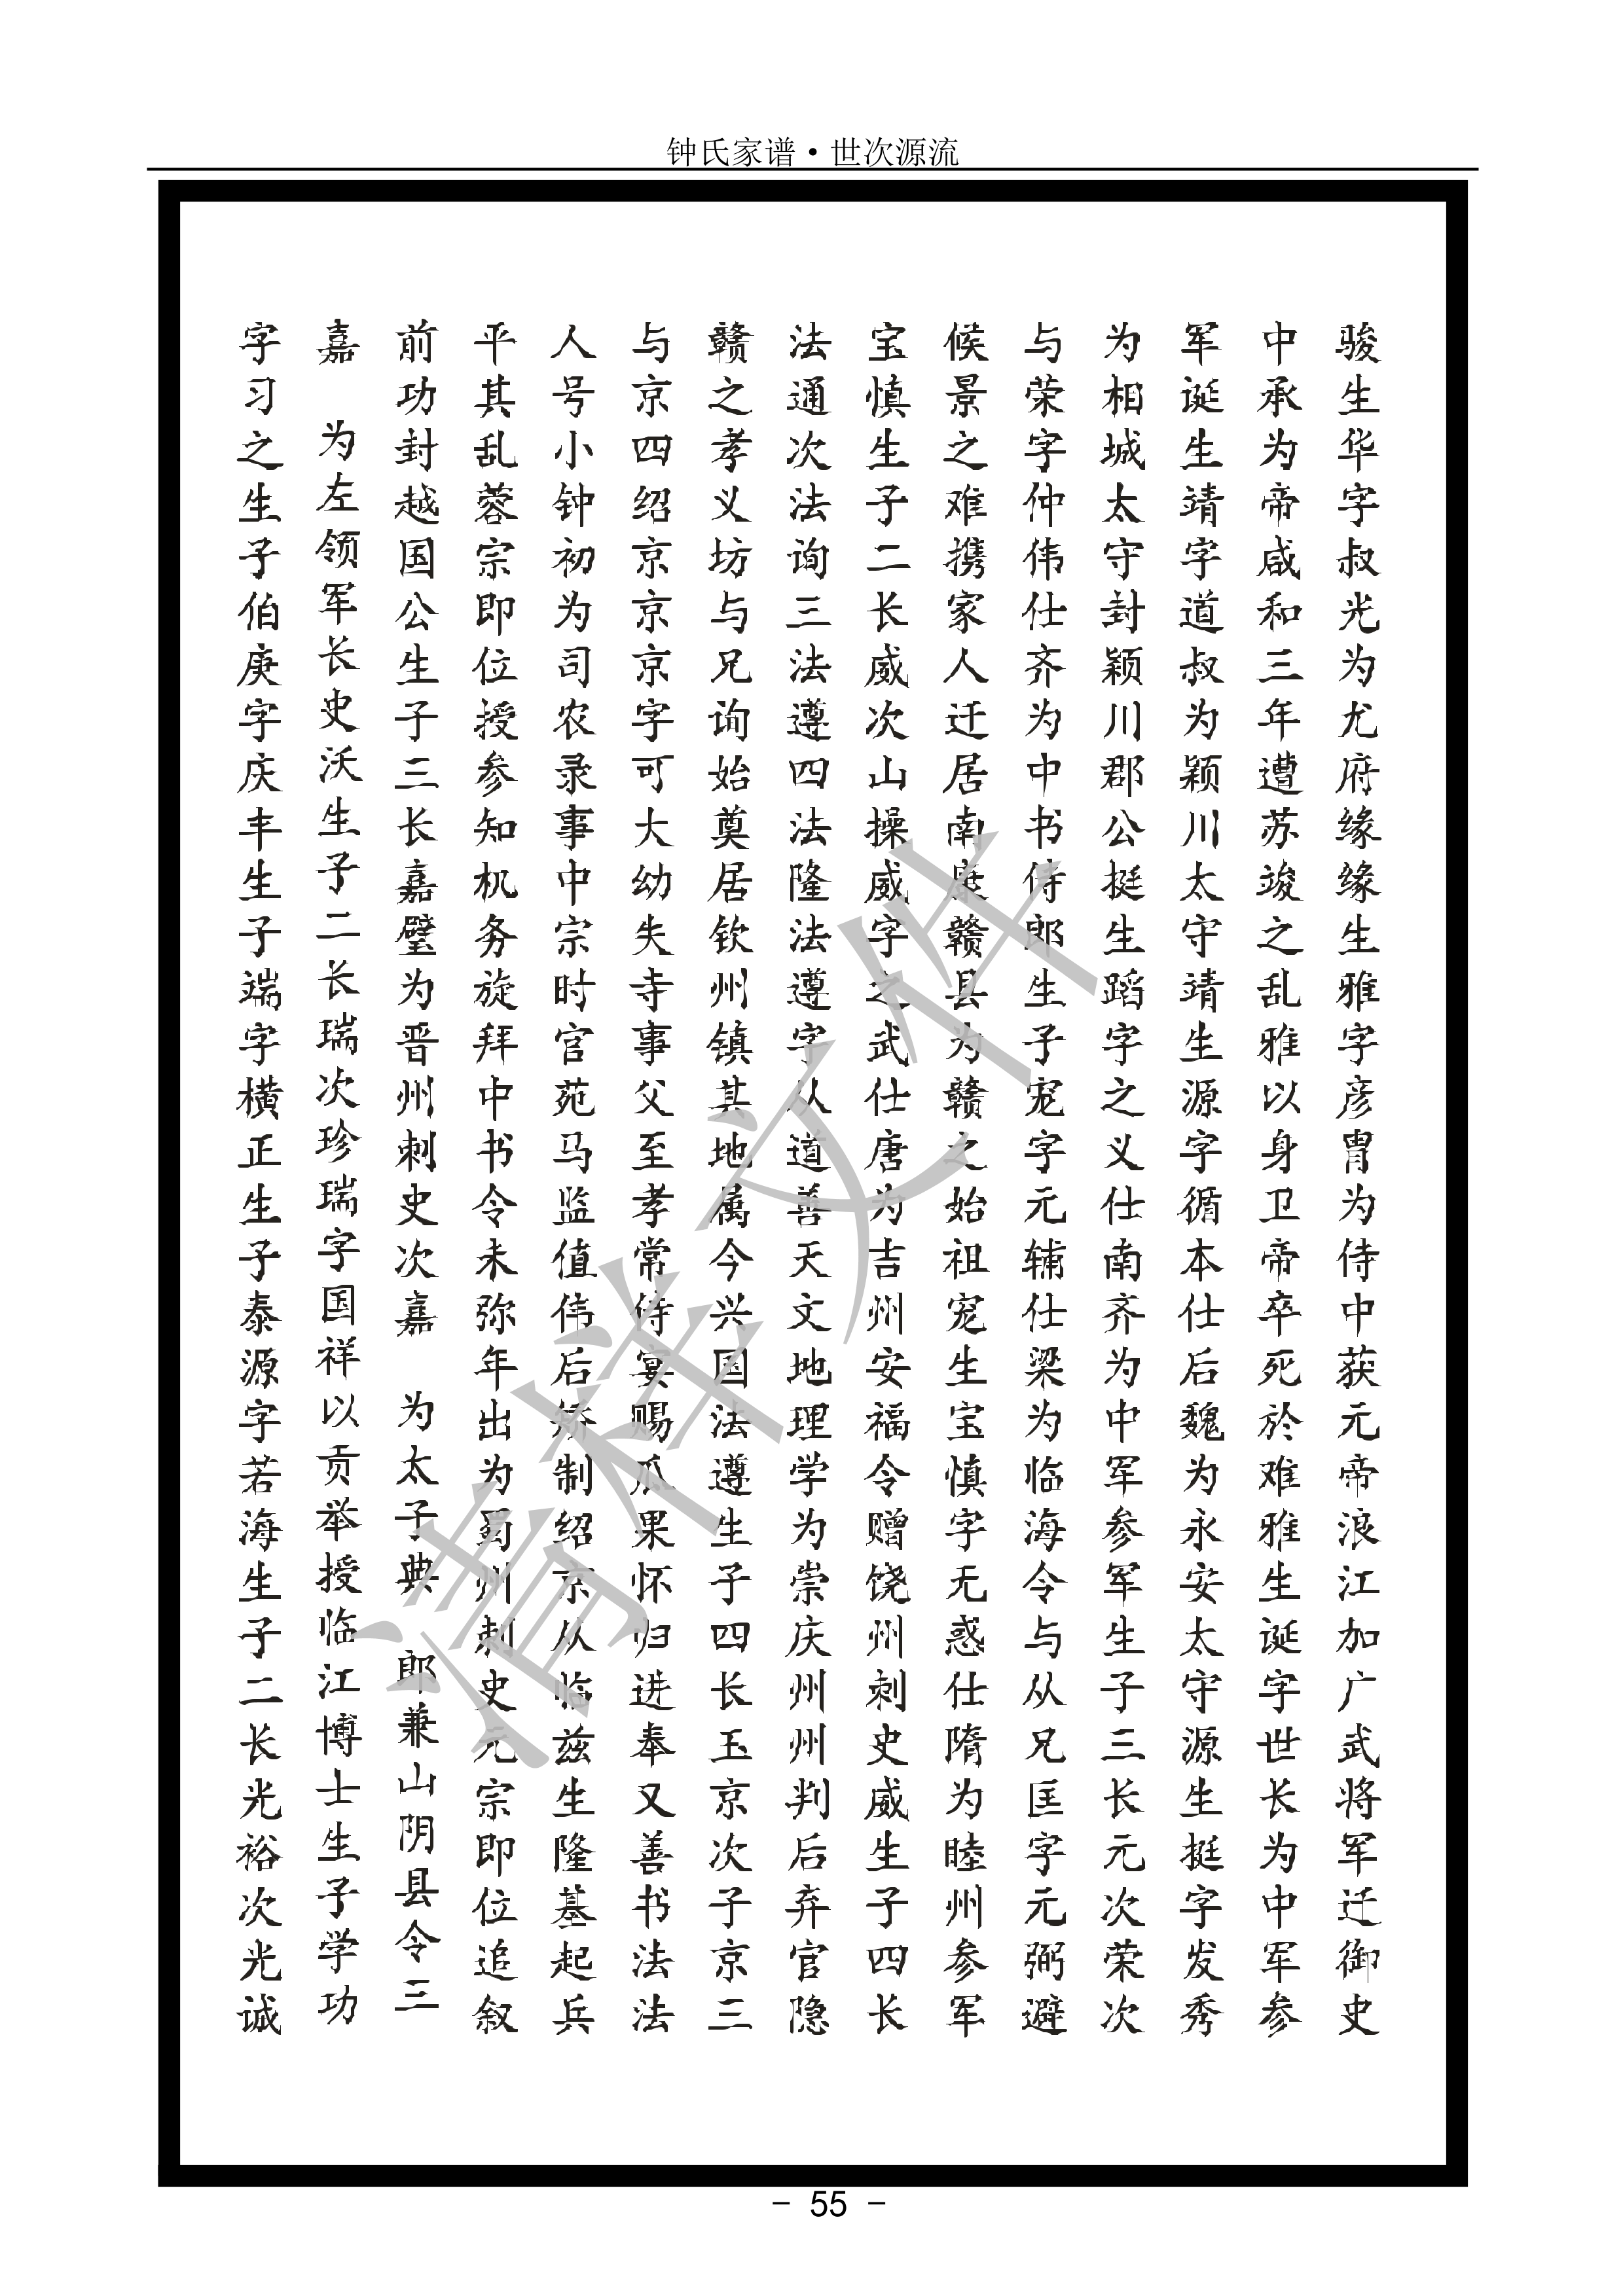 钟氏家谱·世次源流
骏生华字叔光为尤府缘缘生雅字彦胄为侍中获元帝浪江加广武将军迁御史
中承为帝咸和三年遭苏竣之乱雅以身卫帝卒死於难雅生诞字世长为中军参
军诞生靖字道叔为颖川太守靖生源字循本仕后魏为永安太守源生挺字发秀
为相城太守封颖川郡公挺生蹈字之义仕南齐为中军参军生子三长元次荣次
与荣字仲伟仕齐为中书侍郎生子宠字元辅仕梁为临海令与从兄匡字元弼避
候景之难携家人迁居南康赣县为赣之始祖宠生宝慎字无惑仕隋为睦州参军
宝慎生子二长威次山操威字之武仕唐为吉州安福令赠饶州刺史威生子四长
法通次法询三法遵四法隆法遵字从道善天文地理学为崇庆州州判后弃官隐
赣之孝义坊与兄询始奠居钦州镇其地属今兴国法遵生子四长玉京次子京三
与京四绍京京京字可大幼失寺事父至孝常侍宴赐瓜果怀归进奉又善书法法
人号小钟初为司农录事中宗时官苑马监值伟后矫制绍京从临兹生隆基起兵
平其乱蓉宗即位授参知机务旋拜中书令未弥年出为蜀州刺史元宗即位追叙
前功封越国公生子三长嘉璧为晋州刺史次嘉 为太子典 郎兼山阴县令三
嘉 为左领军长史沃生子二长瑞次珍瑞字国祥以贡举授临江博士生子学功
字习之生子伯庚字庆丰生子端字横正生子泰源字若海生子二长光裕次光诚
清样文件
- 55 -